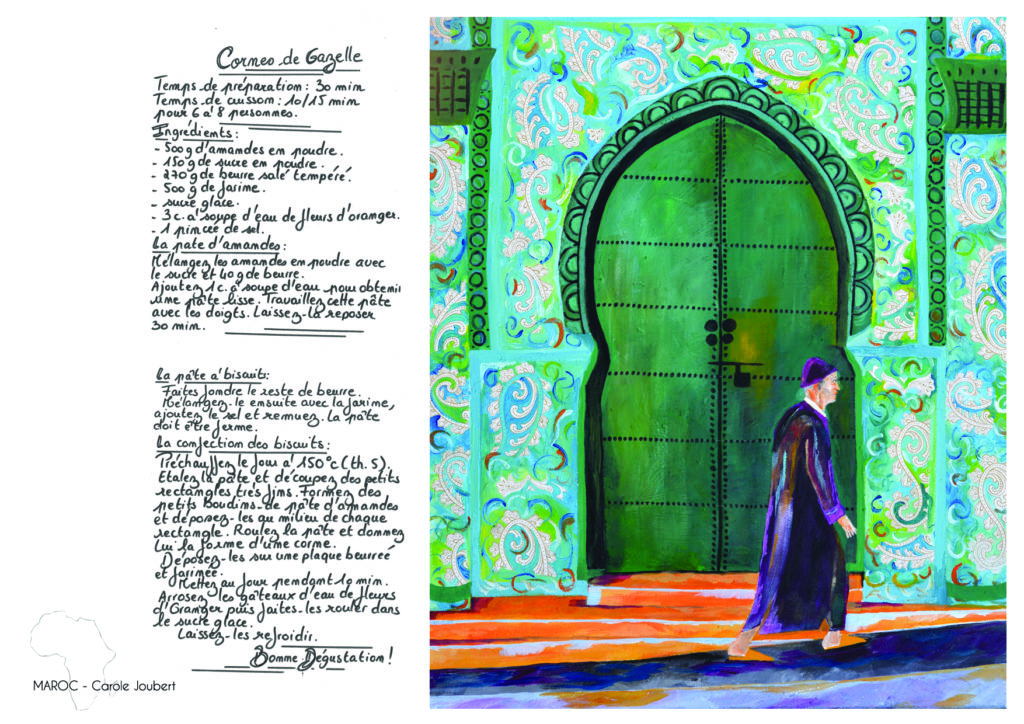 Cornes de Gazelle
Temps de préparation : 30 min
Temps de cuisson : 10/15 min
pour 6 à 8 personnes.
Ingrédients :
- 500g d'amandes en poudre.
- 150g de sucre en poudre.
- 270g de beurre salé tempéré.
- 500g de farine.
- sucre glace.
- 3 c. à soupe d'eau de fleurs d'oranger.
- 1 pincée de sel.
La pâte d'amandes :
Mélangez les amandes en poudre avec
le sucre et 40g de beurre.
Ajoutez 1 c. à soupe d'eau pour obtenir
une pâte lisse. Travaillez cette pâte
avec les doigts. Laissez-la reposer
30 min.
La pâte à biscuits :
Faites fondre le reste de beurre.
Mélangez-le ensuite avec la farine,
ajoutez le sel et remuez. La pâte
doit être ferme.
La confection des biscuits :
Préchauffez le four à 150°c (th. 5).
Etalez la pâte et découpez des petits
rectangles très fins. Formez des
petits boudins de pâte d'amandes
et déposez-les au milieu de chaque
rectangle. Roulez la pâte et donnez
lui la forme d'une corne.
Déposez-les sur une plaque beurrée
et farinée.
Mettez au four pendant 10 min.
Arrosez les gâteaux d'eau de fleurs
d'Oranger puis faites-les rouler dans
le sucre glace.
Laissez-les refroidir.
Bonne Dégustation !
MAROC - Carole Joubert